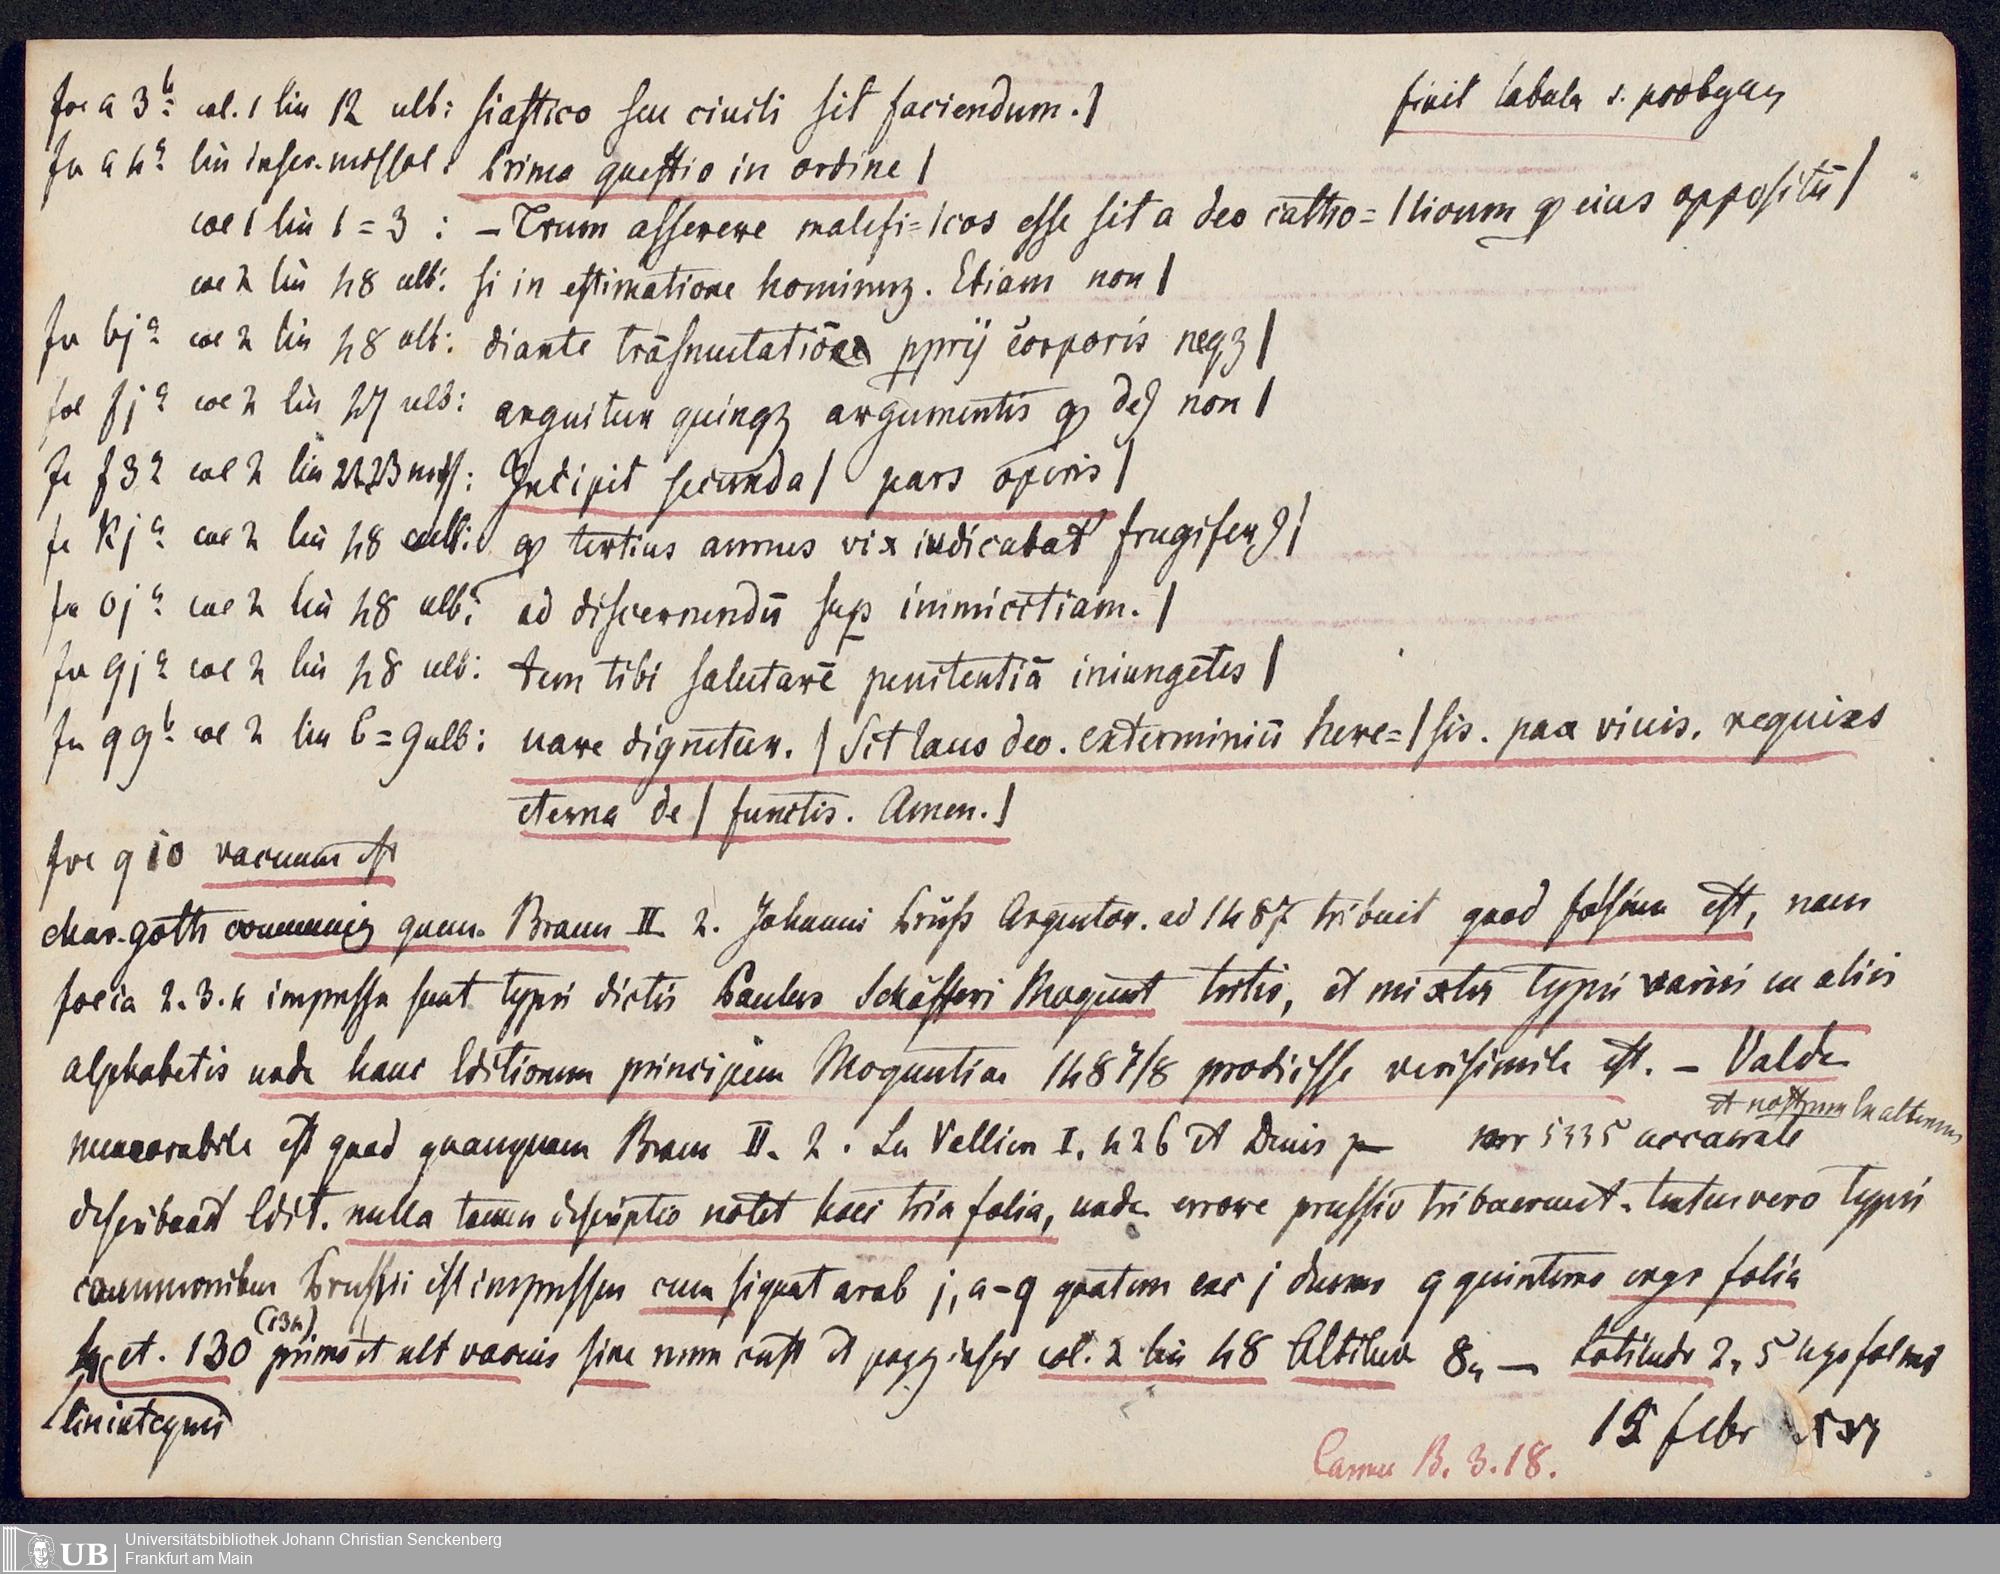 fol a 3b: col. 1 lin 12 ult: siastico seu ciuili sit faciendum. | finit tabula s.
fol a 4a lin infer. missal: Prima questio in ordine |
col 1 lin 1=3 : –Trum asserere malefi=|cos esse sit a deo catho=|licum q eius oppositū |
col 2 lin 48 ult: si in estimatione hominuꝫ. Etiam non |
fol bja col 2 lin 48 ult: diante trāsmutatiōe pprij corporis neqꝫ |
fol fja col 2 lin 47 ult: arguitur quinqꝫ argumentis q deꝰ non |
fol f32 col 2 lin 22.23 miss: Incipit secunda | pars operis |
fol kja col 2 lin 48 ult: q tertius annus vix iudicabat frugifer ꝰ |
fol oja col 2 lin 48 ult: ad discernendū sup inimicitiam. |
fol qja col 2 lin 48 ult: tem tibi salutarē penitentiā iniungētes |
fol q9b: col 2 lin 6=9 ult: nare dignetur. | Sit laus deo. exterminiū here=|sis. pax viuis. requies
eterna de | functis. Amen. |
fol q 10 vacuum est
char. goth communis quem Braun II 2. Johanni Prüss Argentor. ad 1487 tribuit quod falsum est, nam
folia 2.3.4 impressa sunt typis dictis Paulus Schäfferi Mogunt tertio, et mixtis typis variis in aliis
alphabetis unde hanc Editionem principem Moguntiae 1487/8 prodiisse verisimile est. – Valde
et nostrum
memorabile est quod quanquam Braun II. 2. La Vallier I. 426 et Denis p nor 5335 accurate
describant Edit. nulla tamen descriptio notet haec tria folia, unde errore prussio tribuerunt. totus vero typis
communibus Prussii est impressus cum signat arab j, a–q quatern exc j duerno q quinterno ergo folia
(134)
et. 130 primo et ult vacuis sine num cust et pagg infer col. 2 lin 48 Altitud 8„ — Latitudo 2„ 5
lin integris
15 febr
Camer B. 3.18.
Universitätsbibliothek Johann Christian Senckenberg
UB Frankfurt am Main